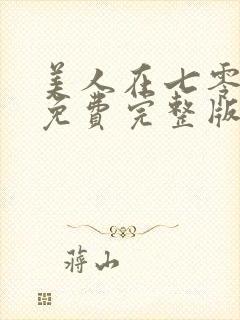 美人在七零
免费完整版
蒋山